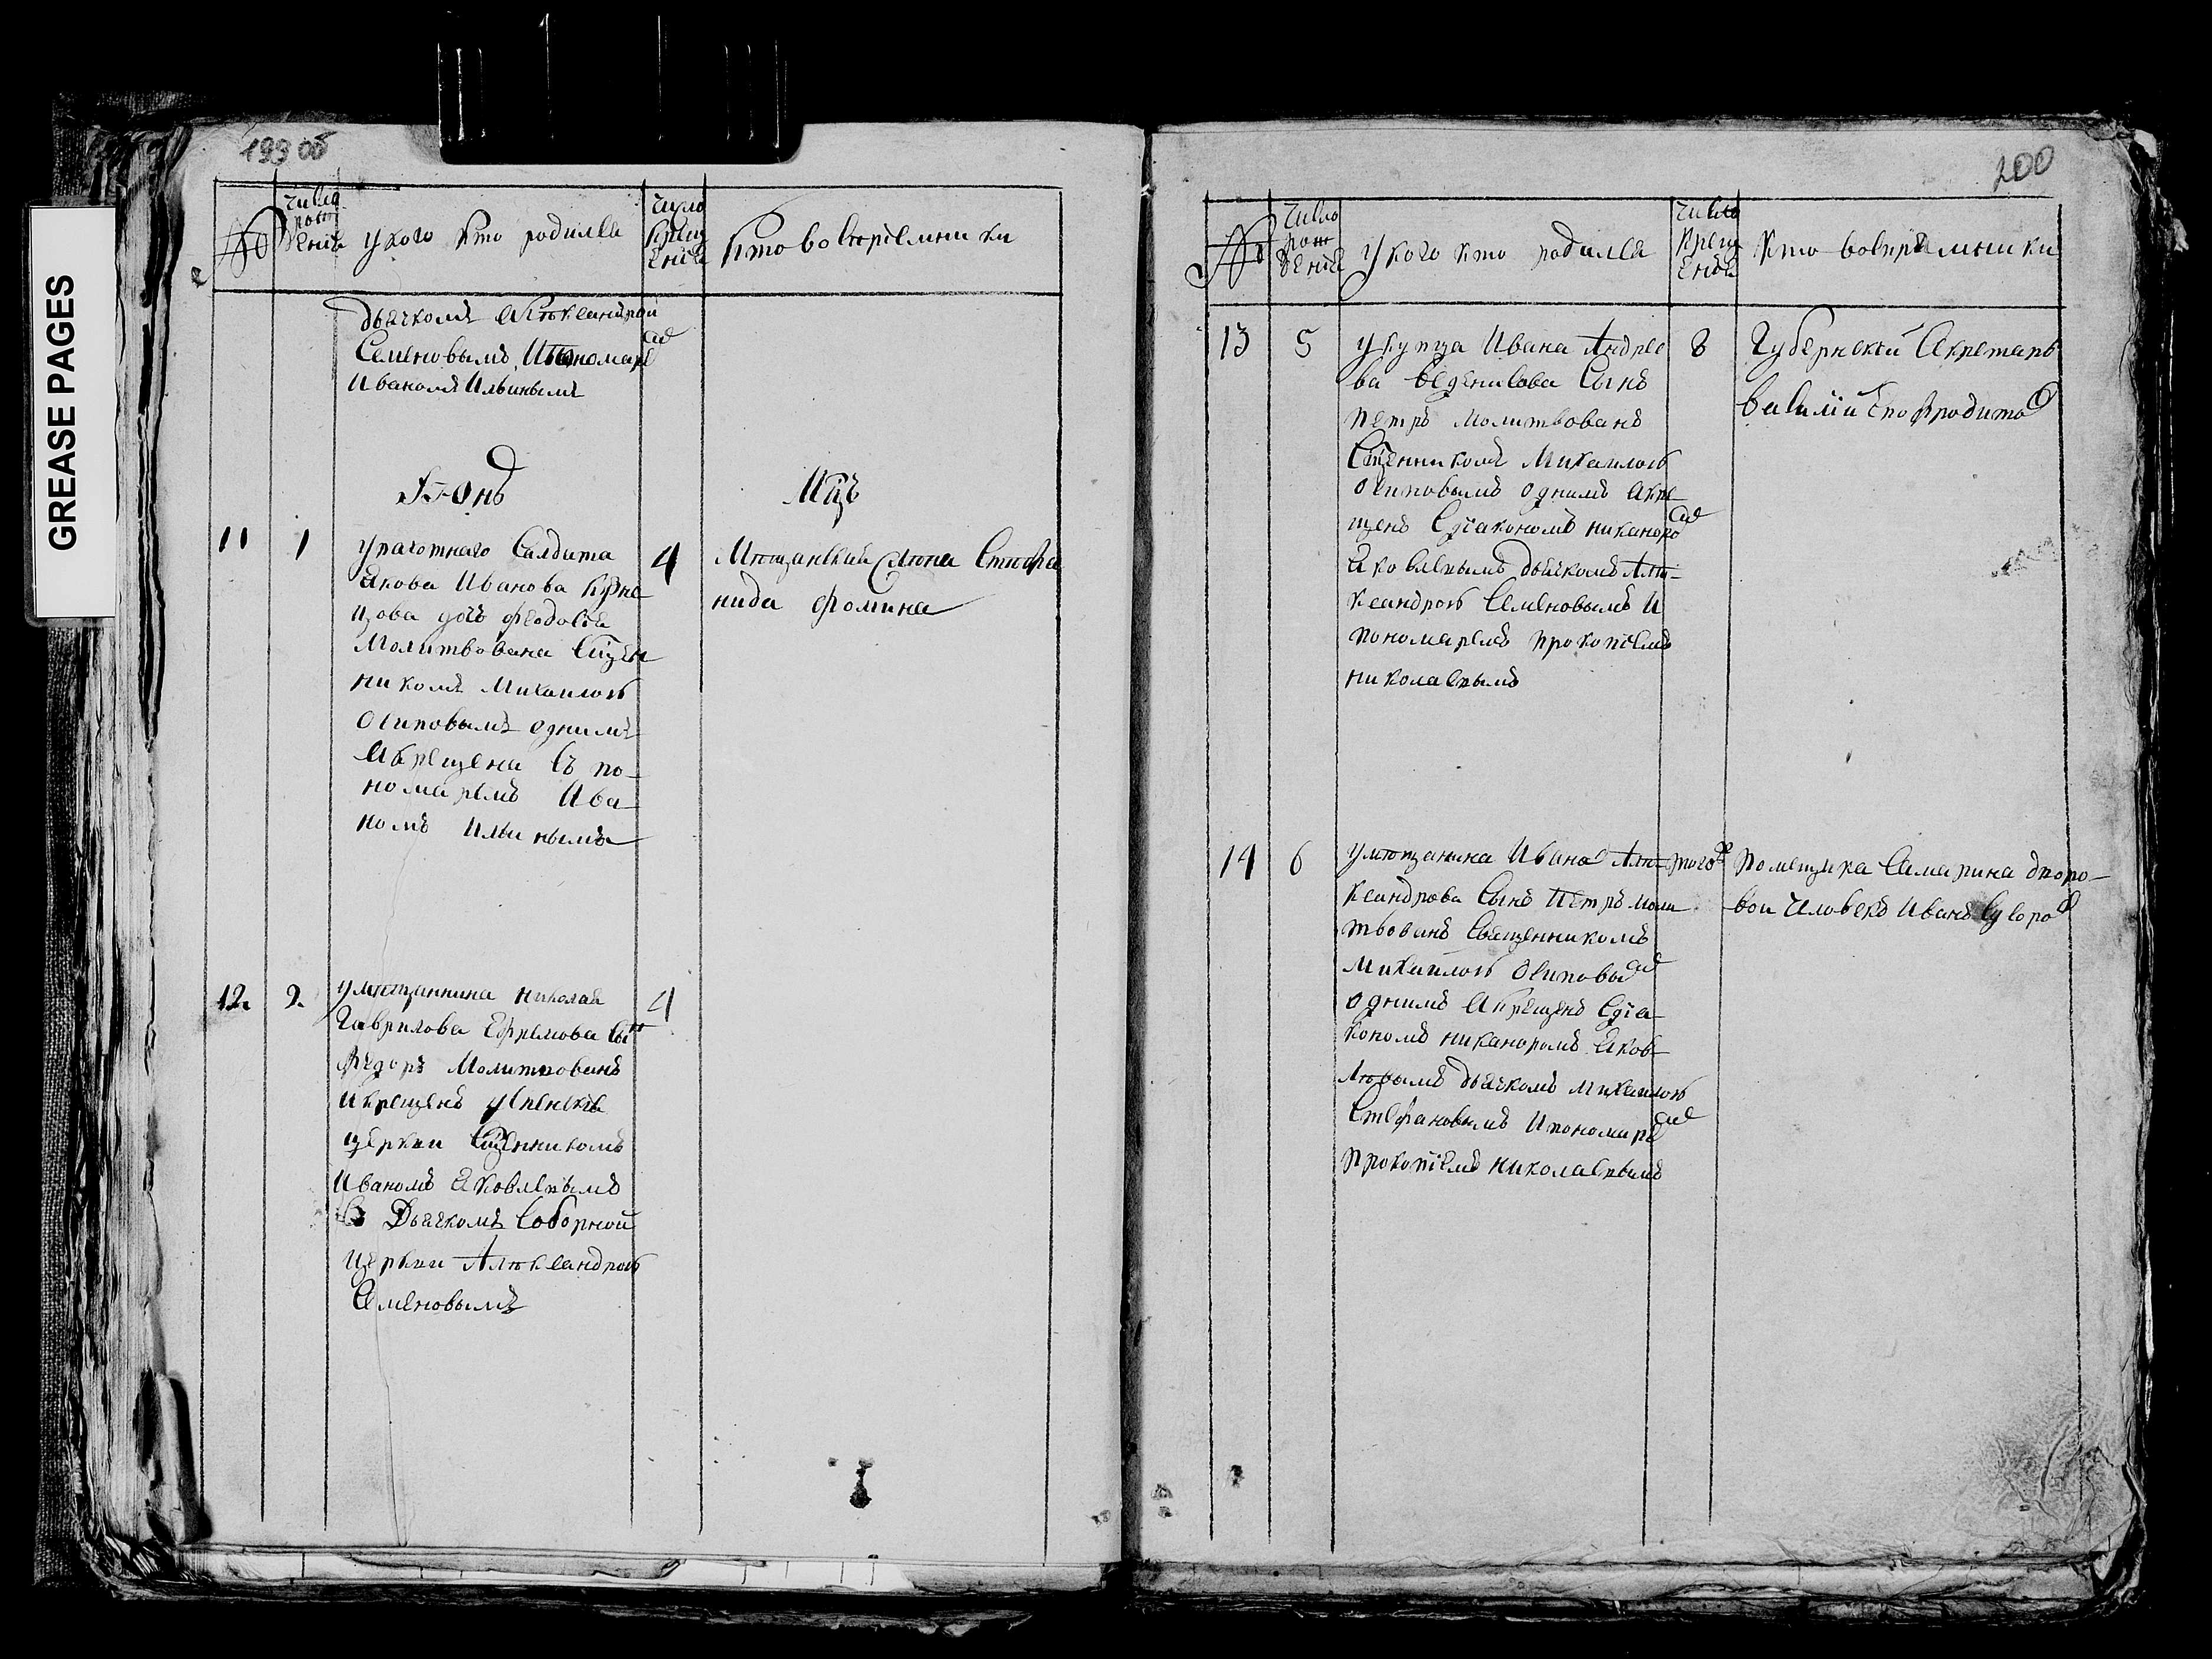 GREASE PAGES
199 об
№
число рождениѧ
у кого кто родилса
число крещениѧ
кто восприемники
дьячкомъ Александромъ
Семеновымъ, Ипономаремъ
Иваномъ Ильинымъ
Iюнь
Мцъ
11
1
Салдата
Якова Иванова
цова дочь феодосия
Молитвована Сщен
никомъ Михаиломъ
Осиповымъ однимъ
Икрещена Съ по-
номаремъ Ива
номъ Ильинымъ
4
Мѣщанская жена Стефа
нида фомина
12.
2.
умѣщанина николая
Гаврилова Ефремова сы
федоръ Молитвованъ
Икрещенъ успенской
церкви Сщенникомъ
Иваномъ Яковлевымъ
Съ Дьячкомъ Соборной
церкви Александромъ
Семеновымъ
4
200
№
число рождениѧ
у кого кто родилса
число крещениѧ
кто восприемники
13
5
укупца Ивана Андрее
ва Сынъ
петръ молитвованъ
Сщенникомъ Михаиломъ
Осиповымъ однимъ Икре
щенъ Сдиакономъ никаноромъ
Яковлевымъ дьячкомъ Але-
ксандромъ Семеновымъ И
пономаремъ прокопiемъ
николаевымъ
8
Губернской Секретарь
василий
14
6
умѣщанина Ивана Але-
ксандрова Сынъ Петръ моли
твованъ Священникомъ
Михаиломъ Осиповымъ
однимъ Икрещенъ Сдiа-
кономъ никаноромъ Яков-
левымъ дьячкомъ михаиломъ
Стефановымъ Ипономаремъ
прокопiемъ николаевымъ
того ж
помещика Самарина дворо-
вой человекъ Иванъ